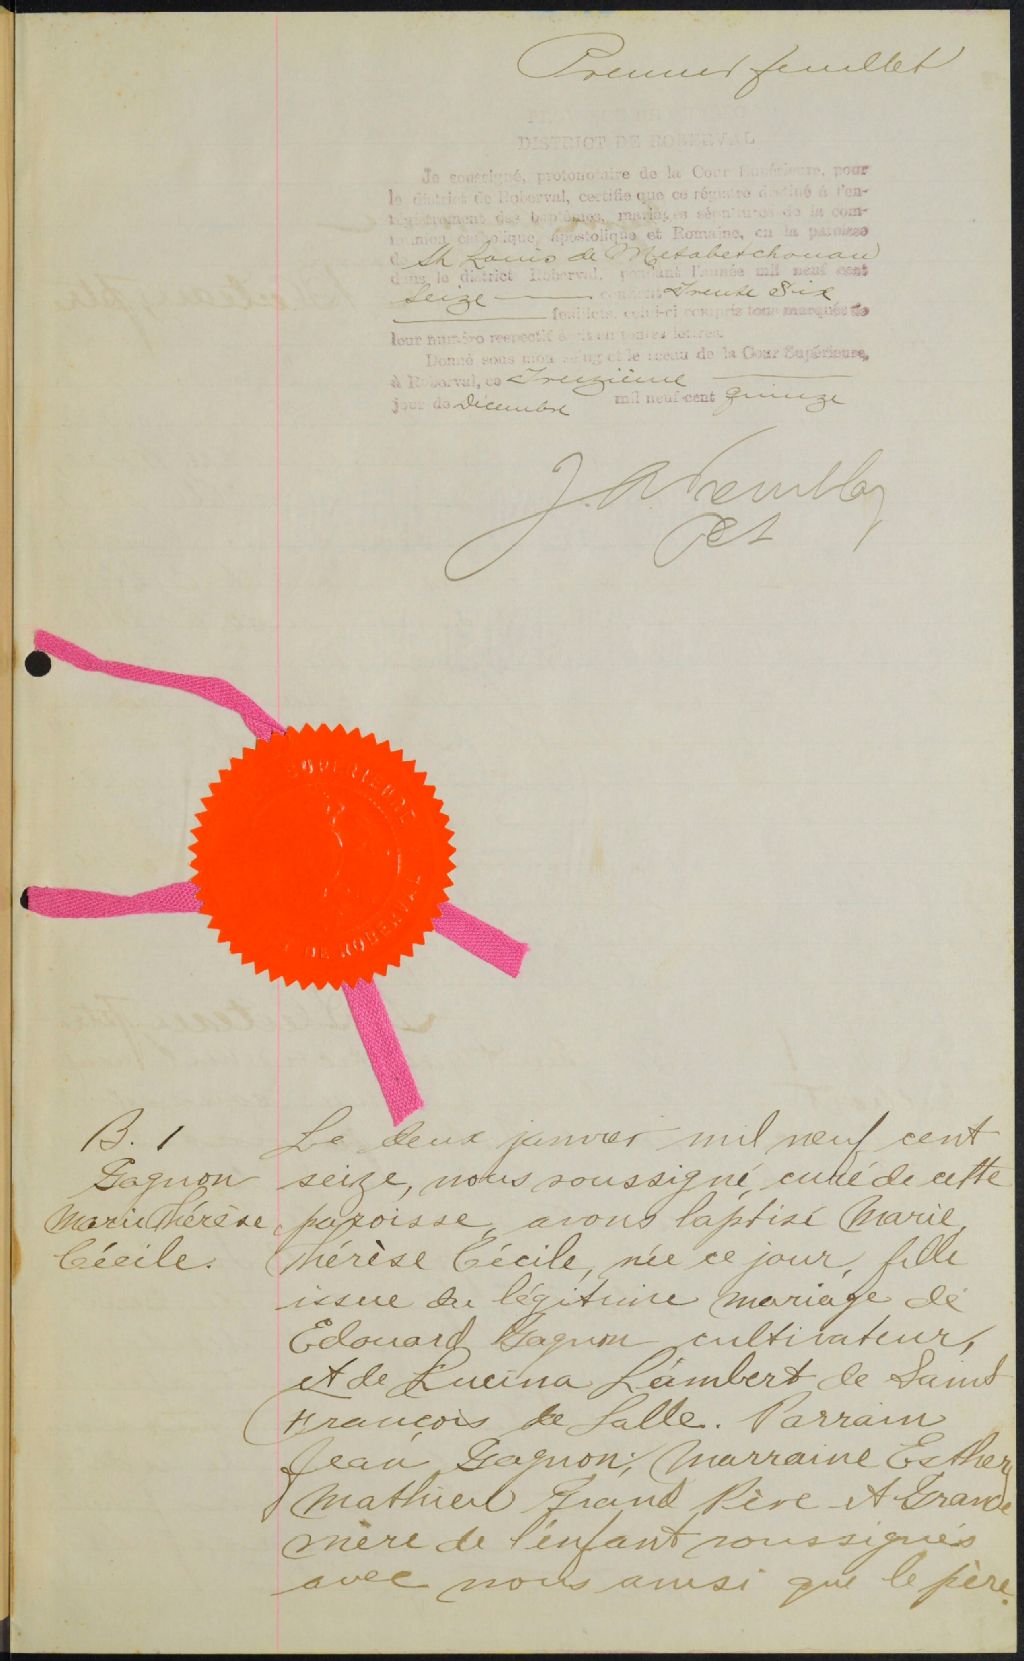 Premier feuillet
DISTRICT DE ROBERVAL
Je soussigné, protonotaire de la Cour Supérieure, pour
le district de Roberval, certifie que ce régistre destiné à l'en-
régistrement des baptêmes, mariages sépultures de la com-
munion catholique, apostolique et Romaine, en la paroisse
de St Louis de Metabetchouan
dans le district Roberval, pendant l'année mil neuf cent
Seize contient Trente Six
feuillets, celui-ci compris tous marqués de
leur numéro respectif écrit en toutes lettres.
Donné sous mon seing et le sceau de la Cour Supérieure,
à Roberval, ce Treizième
jour de Décembre mil neuf-cent quinze
J. A. Tremblay
SUPERIEURE
DE ROBERVAL
B. 1
Gagnon
Marie Thérèse
Cécile.
Le deux janvier mil neuf cent
seize, nous soussigné, curé de cette
paroisse, avons baptisé Marie,
Thérèse Cécile, née ce jour, fille
issue du légitime mariage de
Edouard Gagnon cultivateur,
et de Lucina Lambert de Saint
François de Salle. Parrain
Jean Gagnon, Marraine Esther
Mathieu Grand Père et Grand
mère de l'enfant soussignés
avec nous ainsi que le père.